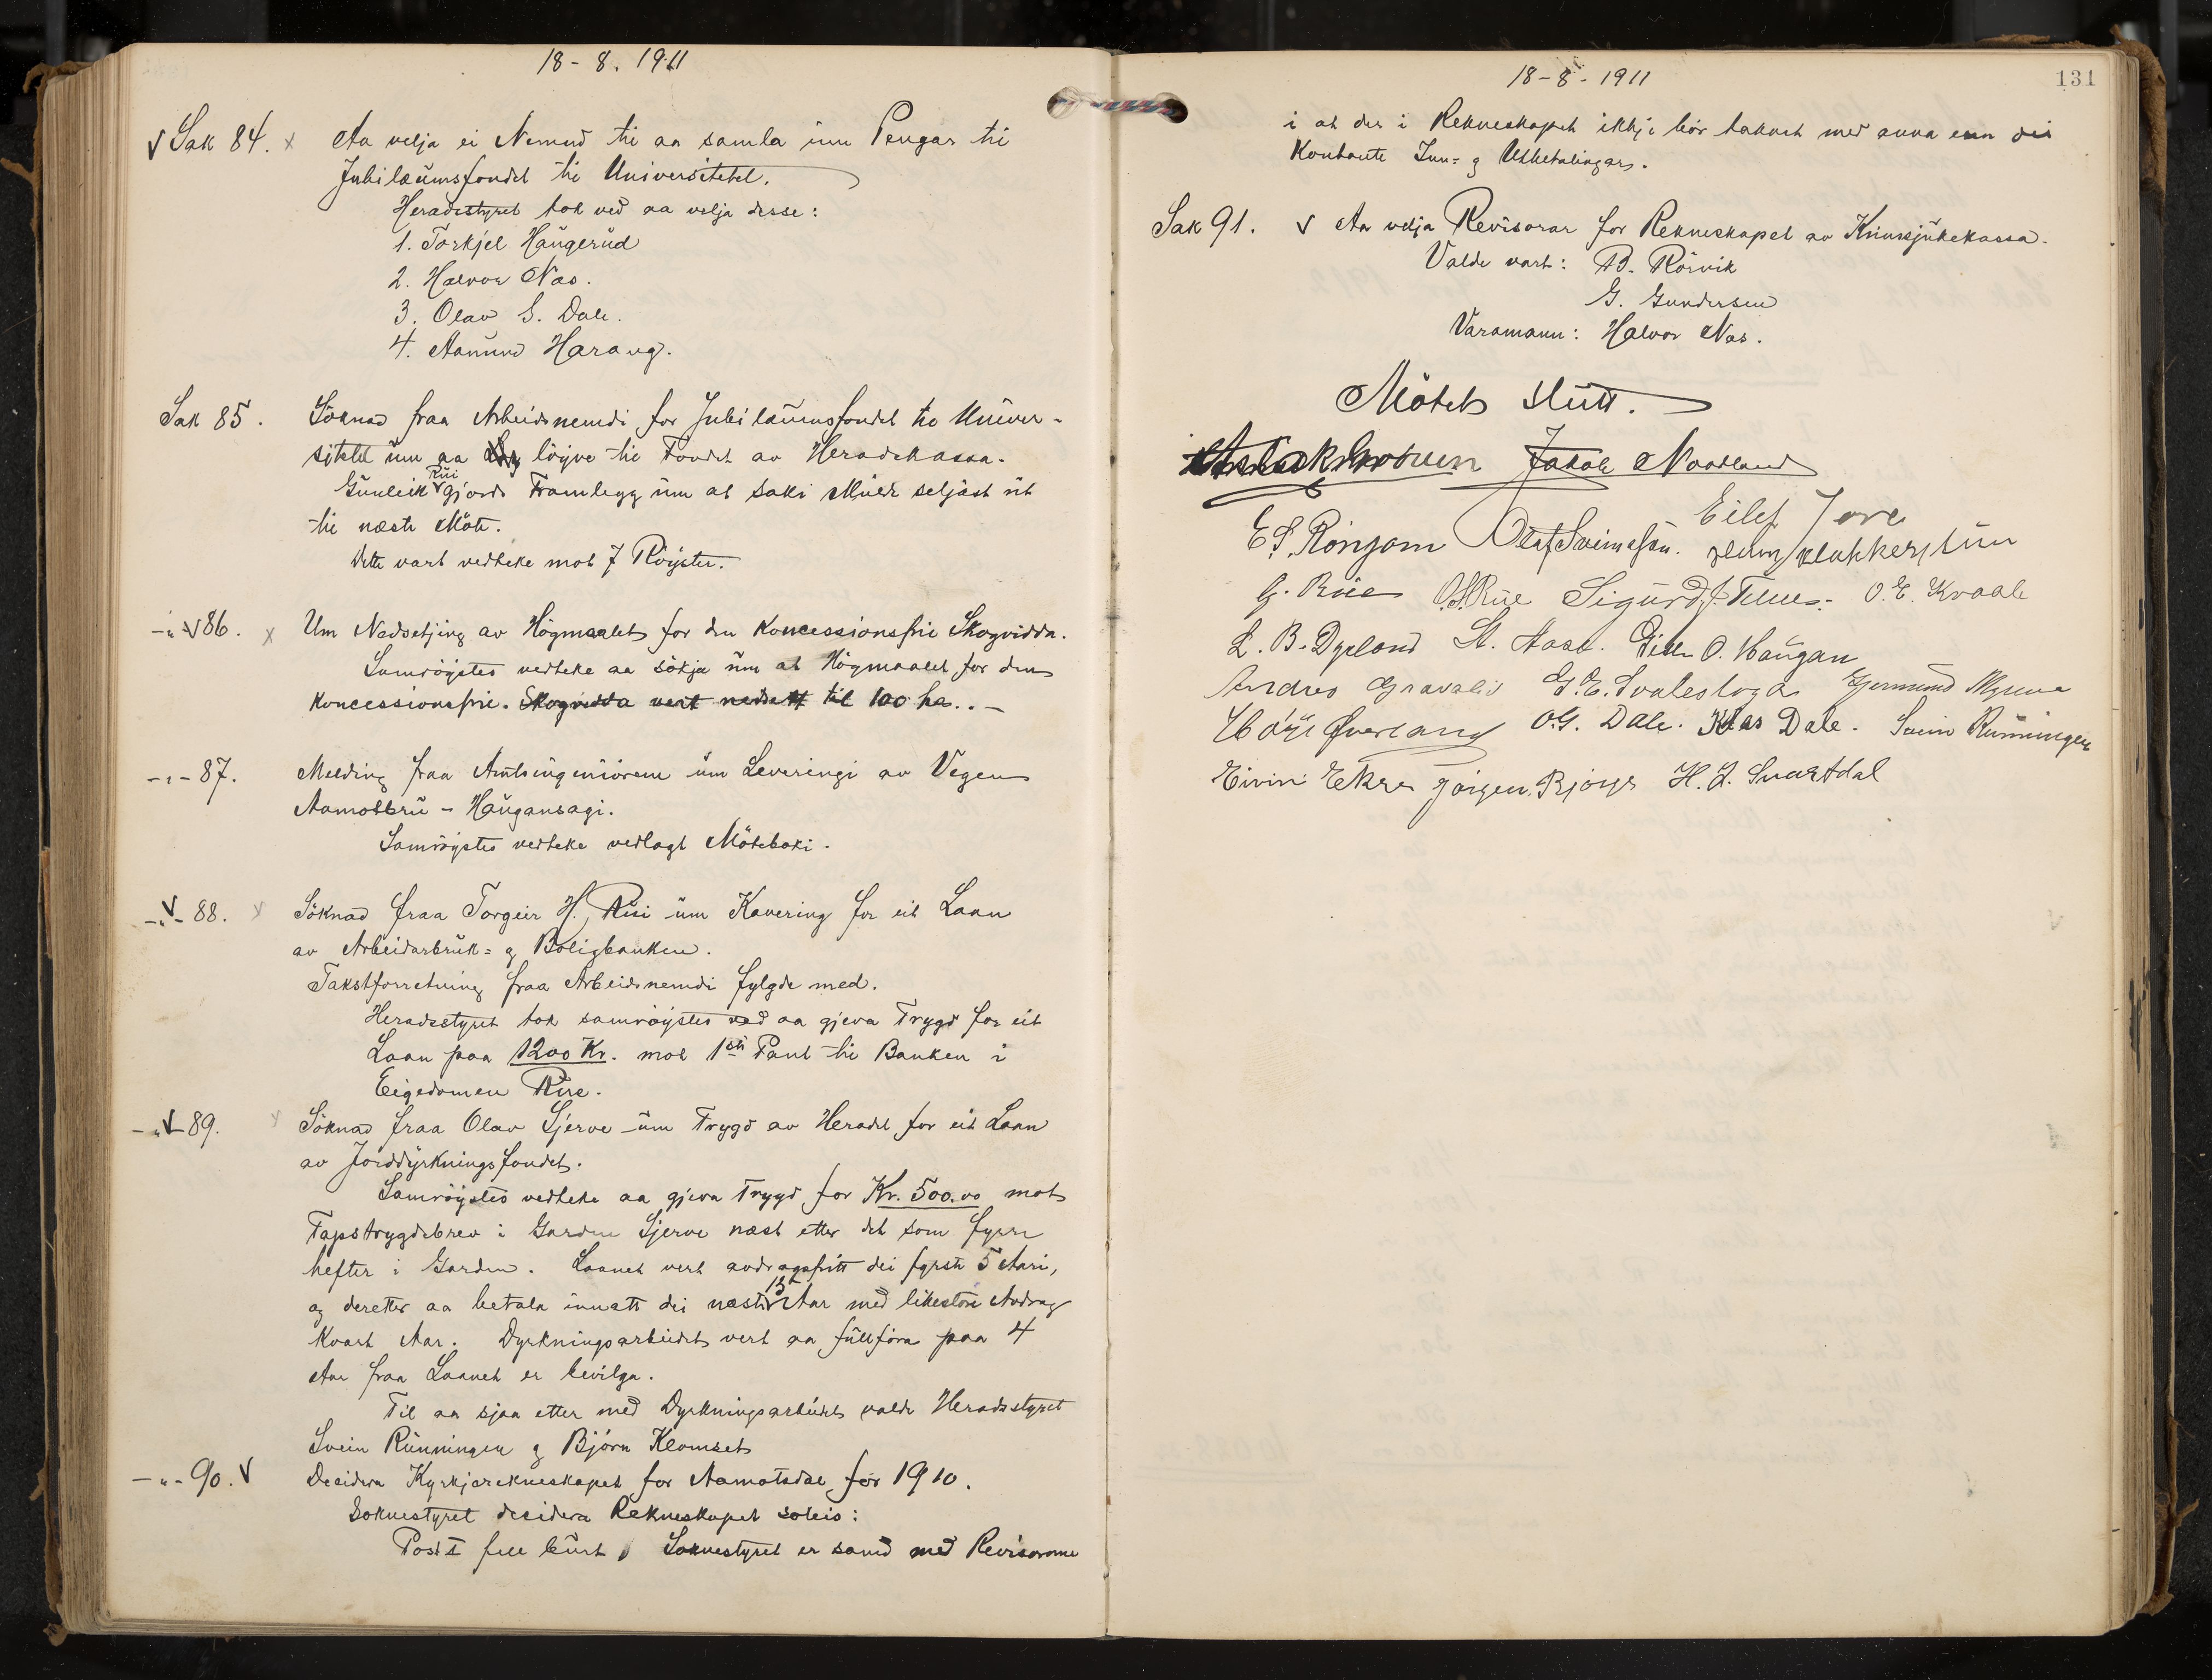 18-8. 1911
Sak 84. Aa velja ei Nemnd til aa samla inn Pengar til
Jubilæumsfondet til Universitetet.
Heradsstyret tok ved aa velja desse:
1. Torkjel Haugerud
2. Halvor Nas.
3. Olav S. Dale.
4. Aanund Haraug.
Sak 85. Söknad fraa Arbeidsnemdi for Jubilæumsfondet til Univer-
sitetet um aa löyve til Fondet av Heradskassa.
Gunleik Rui gjorde Framlegg um at saki skulde setjast ut
til næste Möte.
Dette vart vedteke mot 7 Röyster.
-"- 86. Um Nedsetjing av Högmaalet for den koncessionsfrie Skogvidda.
Samröystes vedteke aa sökja um at Högmaalet for den
koncessionsfrie. Skogvidda vert nedsett til 100 ha. . -
-"- 87. Melding fraa Amtsingeniörene um Leveringi av Vegen
Aamotbru - Haugansagi.
Samröystes vedteke vedlagt Möteboki.
-"- 88. Söknad fraa Torgeir H. Rui um Kavering for eit Laan
av Arbeidarbruk= og Boligbanken.
Takstforretning fraa Arbeidsnemdi fylgde med.
Heradsstyret tok samröystes ved aa gjeva Trygd for eit
Laan paa 1200 Kr. mot 1ste Pant til Banken i
Eigedomen Rue.
-"- 89. Söknad fraa Olav Gjerve um Trygd av Heradet for eit Laan
av Jorddyrkningsfondet.
Samröystes vedteke aa gjeva Trygd for Kr. 500.00 mot
Tapstrygdebrev i Garden Gjerve næst etter det som fyrr
hefter i Garden. Laanet vert avdragsfritt dei fyrste 5 Aari,
og deretter aa betala innatt dei næste 15 Aar med likestore Avdrag
kvart Aar. Dyrkningsarbeidet vert aa fullföra paa 4
Aar fraa Laanet er bevilga.
Til aa sjaa etter med Dyrkningsarbeidet valde Heradsstyret
Svein Runningen og Björn Klomset
-"- 90. Decidera Kyrkjerekneskapet for Aamotsdal for 1910.
Soknestyret decidera Rekneskapet soleis:
Post I fell burt, Soknestyret er samd med Revisorane
18-8-1911
131
i at der i Rekneskapet ikkje bör takast med anna enn dei
Kontante Inn= og Utbetalingar.
Sak 91. Aa velja Revisorar for Rekneskapet av Krinssjukekassa.
Valde vart: B. Rörvik
G. Gundersen
Varamann: Halvor Nas.
Mötet slutt.
Jakob Naadland
Eilef Jore
E S. Ringom Olaf Sveinsson.
G. Rue O.S.Rue Sigurd J. O. E. Kvaale
L. B. Dyrland St. Aase. O. Haugan
Andres Gravalid G. E. Svalestoga Gjermund
Høye Øverland O.G. Dale. Klas Dale. Svein Runningen
Eivin Ekre Jörgen H. J. Svartdal